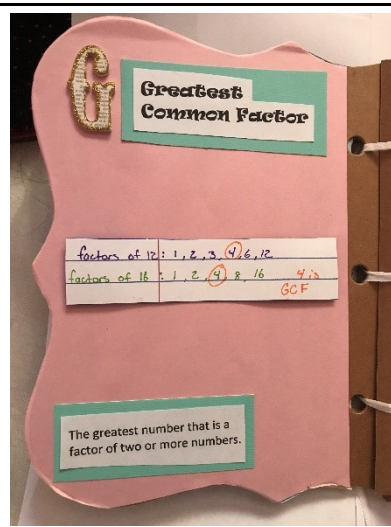 G
Greatest
Common Factor
factors of 12: 1, 2, 3, 4, 6, 12
factors of 16: 1, 2, 4, 8, 16 4 is
GCF
The greatest number that is a
factor of two or more numbers.